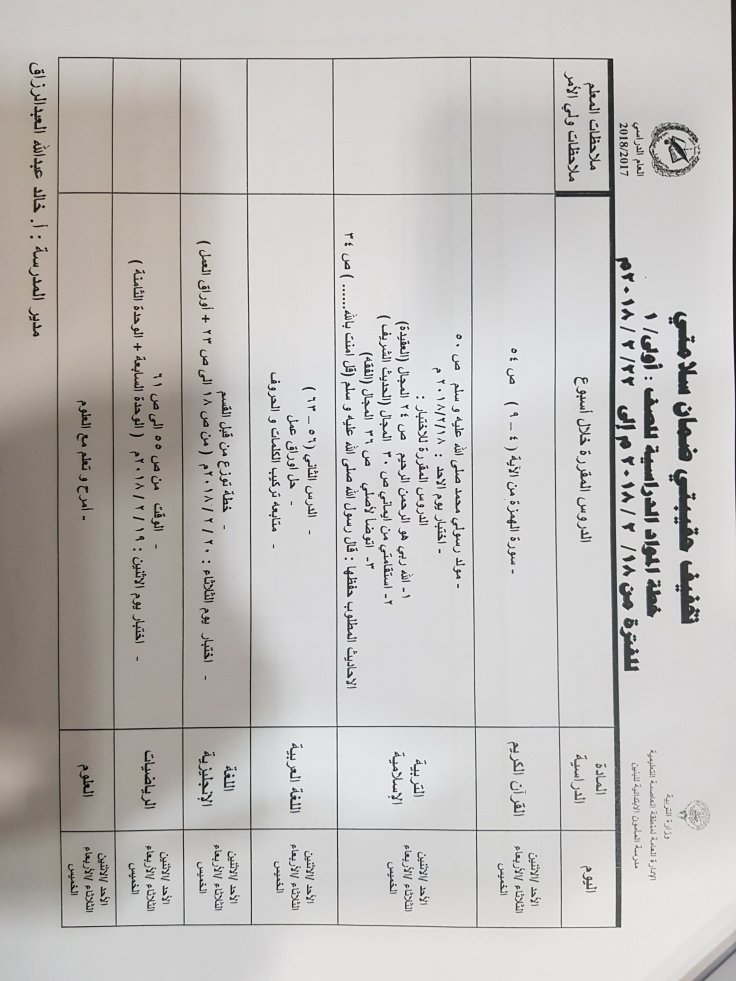 وزارة التربية
الإدارة العامة لمنطقة العاصمة التعليمية
مدرسة المأمون الابتدائية للبنين
العام الدراسي
2018/2017
تخفيف حقيبتي ضمان سلامتي
خطة المواد الدراسية للصف : أولى/ ١
للفترة من ١٨/ ٢ / ٢٠١٨ م إلى ٢٢/ ٢ / ٢٠١٨م
اليوم
المادة الدراسية
الدروس المقررة خلال أسبوع
ملاحظات المعلم
ملاحظات ولي الأمر
الأحد /الاثنين
الثلاثاء /الأربعاء
الخميس
القرآن الكريم
- سورة الهمزة من الآية ( ٤ – ٩ ) ص ٥٤
الأحد /الاثنين
الثلاثاء /الأربعاء
الخميس
التربية
الإسلامية
- مولد رسولي محمد صلى الله عليه و سلم ص ٥٠
- اختبار يوم الاحد : ٢٠١٨/٢/١٨ م
الدروس المقررة للاختبار :
١- الله ربي هو الرحمن الرحيم ص ٢٤ المجال (العقيدة)
٢- استقامتي من ايماني ص ٣٠ المجال (الحديث الشريف )
٣- اتوضأ لأصلي ص ٣٦ المجال (الفقه)
الاحاديث المطلوب حفظها : قال رسول الله صلى الله عليه و سلم (قل امنت بالله....... ) ص ٣٤
الأحد /الاثنين
الثلاثاء /الأربعاء
الخميس
اللغة العربية
- الدرس الثاني (٥٦ – ٦٣ )
- حل اوراق عمل
- متابعه تركيب الكلمات و الحروف
الأحد /الاثنين
الثلاثاء /الأربعاء
الخميس
اللغة
الإنجليزية
- خطة توزع من قبل القسم
- اختبار يوم الثلاثاء : ٢٠ / ٢ / ٢٠١٨م ( من ص ١٨ الى ص ٢٣ + أوراق العمل )
الأحد /الاثنين
الثلاثاء /الأربعاء
الخميس
الرياضيات
- الوقت من ص ٥٥ الى ص ٦١
- اختبار يوم الاثنين : ١٩ / ٢ / ٢٠١٨م ( الوحدة السابعة + الوحدة الثامنة )
الأحد /الاثنين
الثلاثاء /الأربعاء
الخميس
العلوم
- أمرح و تعلم مع العلوم
مدير المدرسة : أ. خالد عبدالله العبدالرزاق